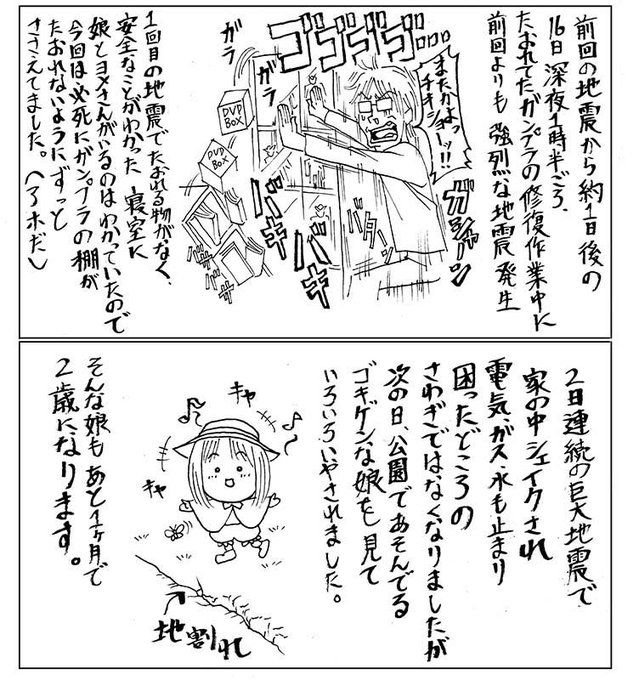 前回の地震から約1日後の
16日深夜1時半ごろ、
たおれてたガンプラの修復作業中に
前回よりも強烈な地震発生
ゴゴゴゴ・・・
またかよっ
チキショーッ!!
ガシャーン
バターン
バキ
バキ
ガラ
ガラ
DVD
BOX
DVD
BOX
1回目の地震でたおれる物がなく、
安全なことがわかった寝室に
娘とヨメさんがいるのはわかっていたので
今回は必死にガンプラの棚が
たおれないようにずっと
ささえてました。(アホだ)
2日連続の巨大地震で
家の中シェイクされ
電気ガス水も止まり
困ったどころの
さわぎではなくなりましたが
次の日、公園であそんでる
ゴキゲンな娘を見て
いろいろいやされました。
キャ
キャ
地割れ
そんな娘もあと1ヶ月で
2歳になります。